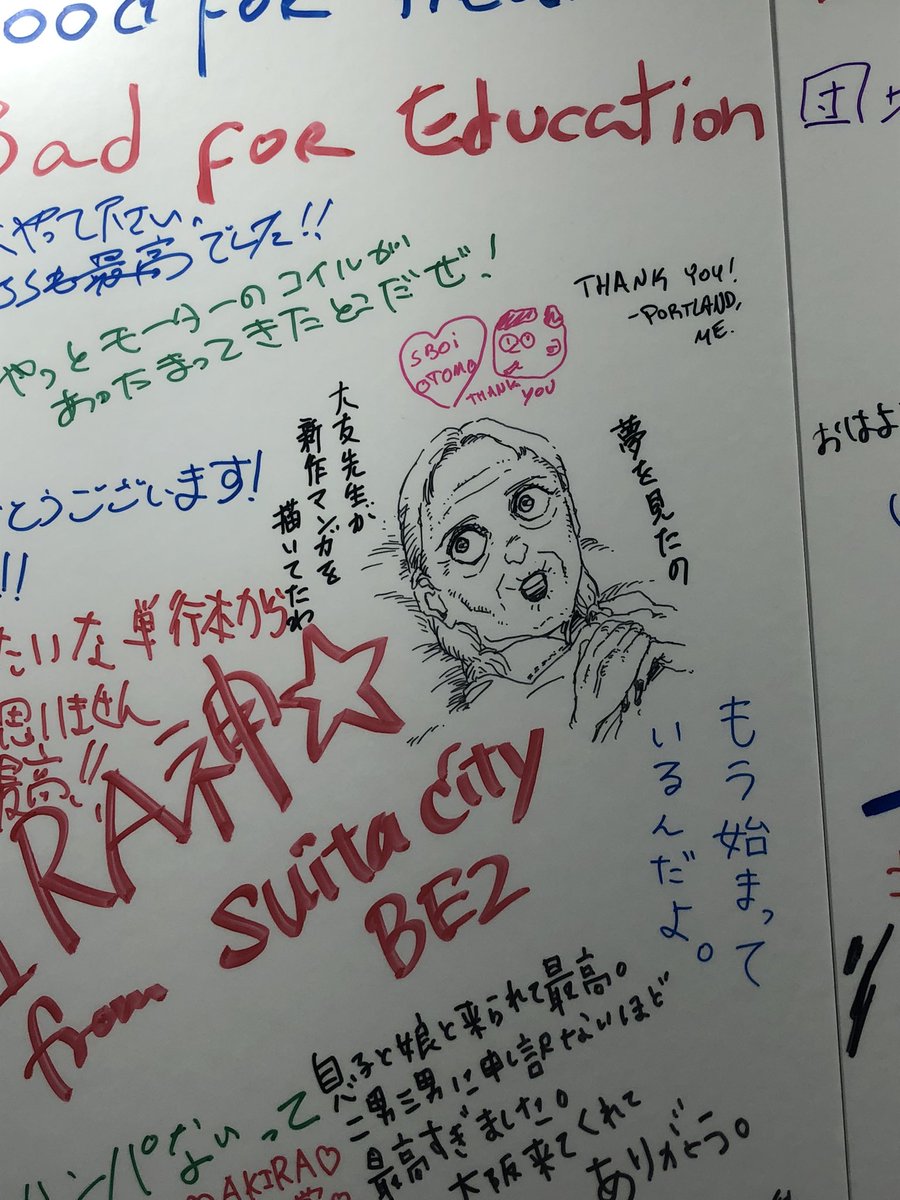 Good for Health
Bad for Education
やって下さい。
も最高でした!!
やっとモーターのコイルが
あったまってきたとこだぜ!
THANK YOU!
-PORTLAND,
ME.
SBOi
OTOMO
THANK
YOU
夢を見たの
大友先生が
新作マンガを
描いてたわ
とうございます!
!!
たいな単行本から
思いません
最高!!
RA神☆
from suita city
BE2
もう始まって
いるんだよ。
息子と娘と来られて最高。
二男三男に申し訳ないほど
最高すぎました。
大阪来てくれて
ありがとう。
ハンパないって
♡AKIRA♡
団
おはよ